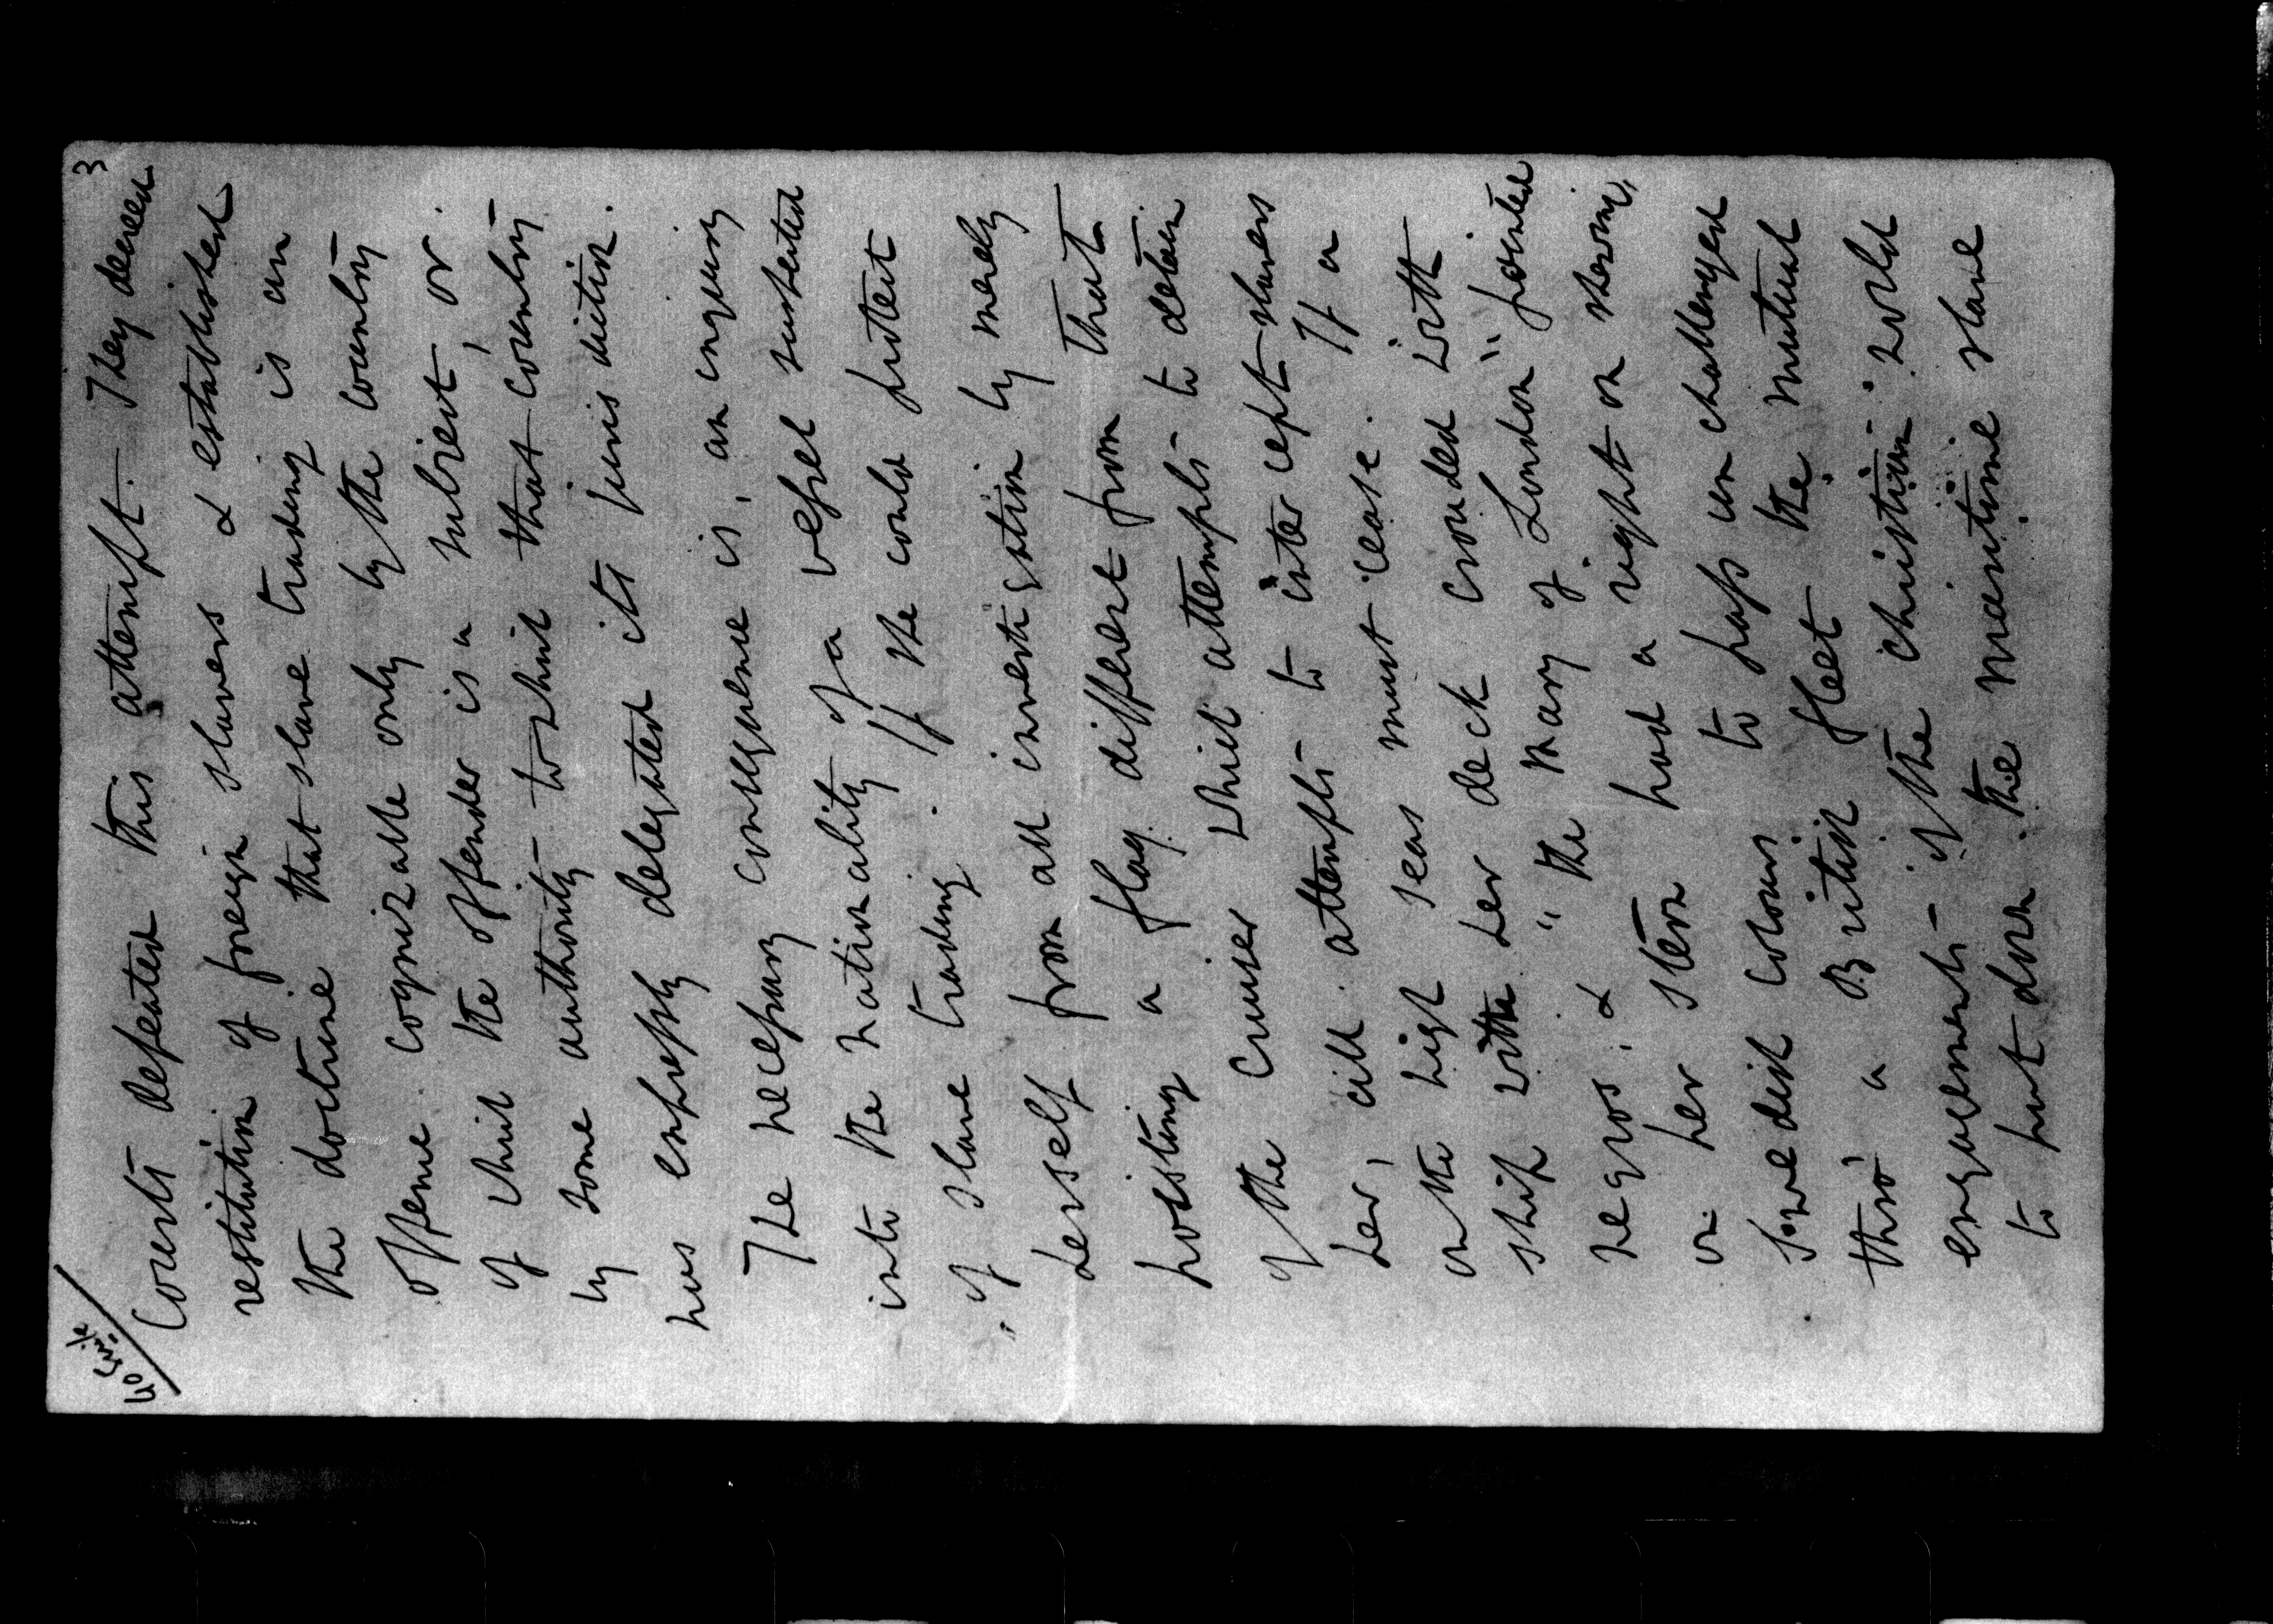 3
Courts defeated this attempt. They decreed
restitution of foreign slavers & established
the doctrine that slave trading is an
offence cognizable only by the country
of which the offender is a subject, or
by some authority to which that country
has expressly delegated its jurisdiction.
The necessary consequence is, an inquiry
into the nationality of a vessel suspected
of slave trading. If she could protect
herself from all investigation by merely
hoisting a flag different from that
of the Cruiser which attempts to detain
her, all attempts to intercept slavers
on the high seas must cease. If a
ship with her deck crowded with
negros, & "the Mary of London" painted
on her stern had a right on shewing
Swedish colours to pass unchallenged
thro' a British fleet the mutual
engagements of the christian world
to put down the maritime slave